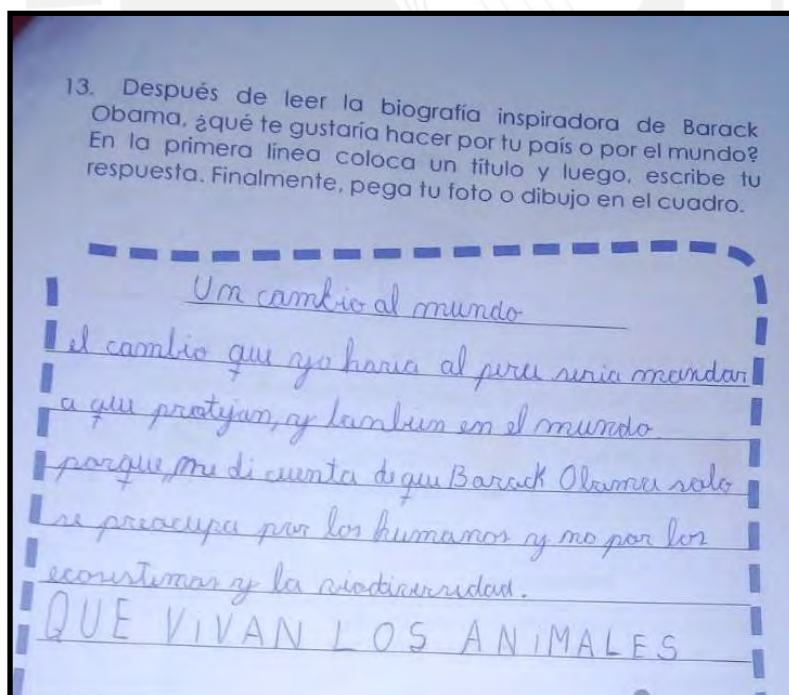 13. Después de leer la biografía inspiradora de Barack
Obama, ¿qué te gustaría hacer por tu país o por el mundo?
En la primera línea coloca un título y luego, escribe tu
respuesta. Finalmente, pega tu foto o dibujo en el cuadro.
Un cambio al mundo
el cambio que yo haria al peru seria mandar
a que protejan, y tambien en el mundo
porque, me di cuenta de que Barack Obama solo
se preocupa por los humanos y no por los
ecosistemas y la biodiversidad.
QUE ViVAN LOS ANiMALES